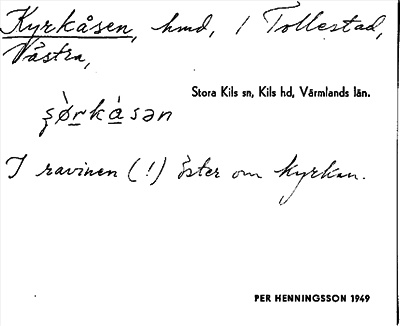 Kyrkåsen, hmd, i Tollestad,
Västra,
Stora Kils sn, Kils hd, Värmlands län.
ʂø̀rkàsən
I ravinen (!) öster om kyrkan.
PER HENNINGSSON 1949